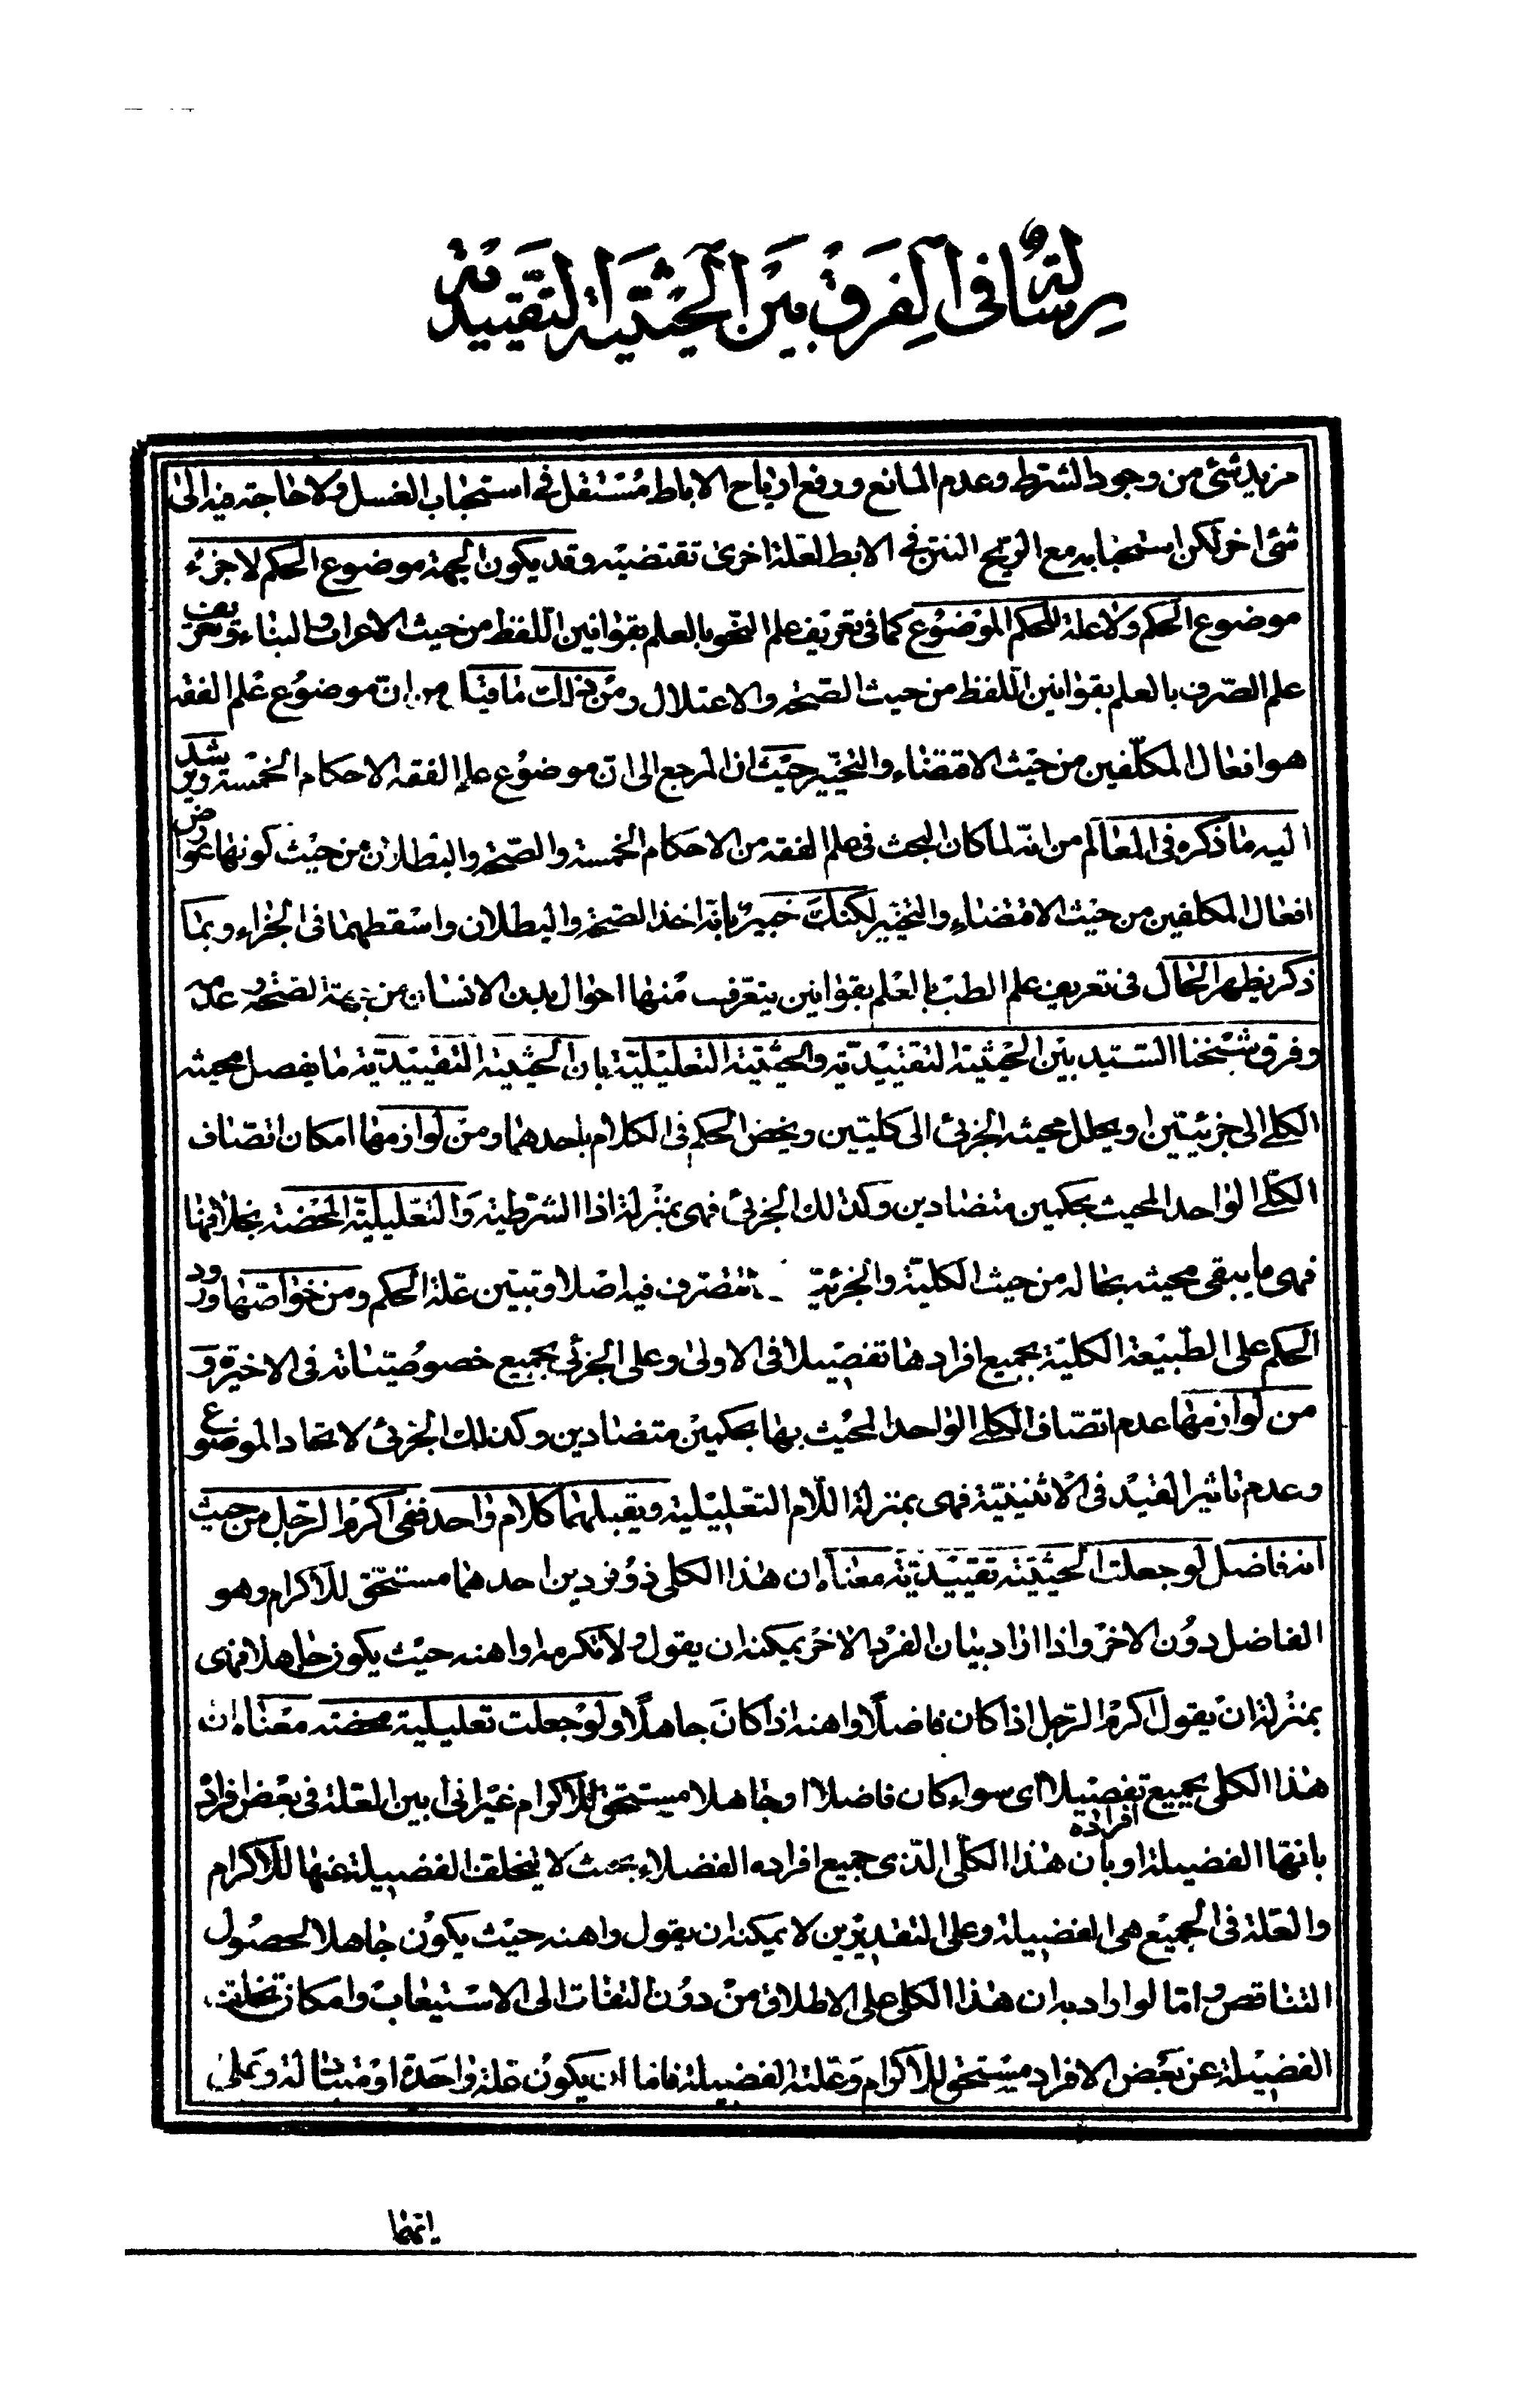 رسالة في الفرق بين الحيثية التقييدية
مزيد شئ من وجود الشرط وعدم المانع ورفع ارياح الاباط مستقل في استحباب الغسل ولا حاجة فيه الى
شئ اخر لكن استحبابه مع الريح النتن في الابط لعلة اخرى تقتضيه وقد يكون الجهة موضوع الحكم لا جزء
موضوع الحكم ولا علة للحكم الموضوع كما في تعريف علم النحو بالعلم بقوانين اللفظ من حيث الاعراب والبناء وتعريف
علم الصرف بالعلم بقوانين اللفظ من حيث الصحة والاعتلال ومن ذلك ما من ان موضوع علم الفقه
هو افعال المكلفين من حيث الاقتضاء والتخيير حيث ان المرجع الى ان موضوع علم الفقه الاحكام الخمسة ويرشد
اليه ما ذكره في المعالم من انه لما كان البحث في علم الفقه من الاحكام الخمسة والصحة والبطلان من حيث كونها عوارض
افعال المكلفين من حيث الاقتضاء والتخيير لكنك خبير بانه اخذ الصحة والبطلان واسقطهما في الجزاء وبما
ذكر يظهر الحال في تعريف علم الطب بالعلم بقوانين يتعرف منها احوال بدن الانسان من جهة الصحة وعدمه
وفرق شيخنا السيد بين الحيثية التقييدية والحيثية التعليلية بان الحيثية التقييدية ما يفصل محيثه
الكلي الى جزئيتين او يحلل محيثه الجزئي الى كليتين ويخص الحكم في الكلام باحدهما ومن لوازمها امكان اتصاف
الكلي الواحد المحيث بحكمين متضادين وكذلك الجزئي فهي بمنزلة اذا الشرطية والتعليلية المحضة بخلافها
فهي ما يبقى محيثه بحاله من حيث الكلية والجزئية تتصرف فيه اصلا وتبين علة الحكم ومن خواصها ورود
الحكم على الطبيعة الكلية بجميع افرادها تفصيلا في الاولى وعلى الجزئي بجميع خصوصيتاته في الاخيرة و
من لوازمها عدم اتصاف الكلي الواحد المحيث بها بحكمين متضادين وكذلك الجزئي لاتحاد الموضوع
وعدم تاثير القيد في الاثنينية فهي بمنزلة اللام التعليلية ويقبلهما كلام واحد ففي اكرم الرجل من حيث
انه فاضل لو جعلت الحيثية تقييدية معناه ان هذا الكلي ذو فردين احدهما مستحق للاكرام وهو
الفاضل دون الاخر واذا اراد بيان الفرد الاخر يمكنه ان يقول ولا تكرمه او اهنه حيث يكون جاهلا فهي
بمنزلة ان يقول اكرم الرجل اذا كان فاضلًا واهنه اذا كان جاهلًا ولو جعلت تعليلية محضة معناه ان
هذا الكلي بجميع افراده تفصيلا اى سواء كان فاضلا او جاهلا مستحق للاكرام غير اني ابين العلة في بعض افراد
بانها الفضيلة او بان هذا الكلي الذي جميع افراده الفضلاء بحيث لا يتخلف الفضيلة عنها للاكرام
والعلة في الجميع هي الفضيلة وعلى التقديرين لا يمكنه ان يقول واهنه حيث يكون جاهلا لحصول
التناقض واما لو اراد به ان هذا الكلي على الاطلاق من دون التفات الى الاستيعاب وامكان تخلف
الفضيلة عن بعض الافراد مستحق للاكرام وعلته الفضيلة فاما ان يكون علة واحدة او وعلى